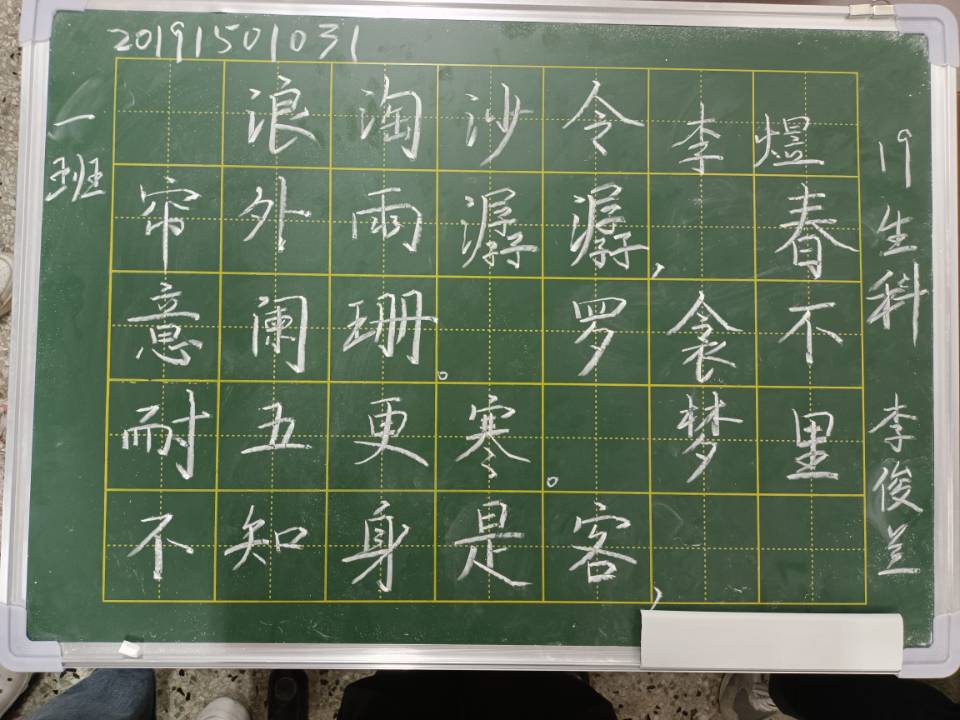 20191501031
一班
浪淘沙令 李煜
帘外雨潺潺, 春
意阑珊。 罗衾不
耐五更寒。 梦里
不知身是客,
19生科 李俊兰